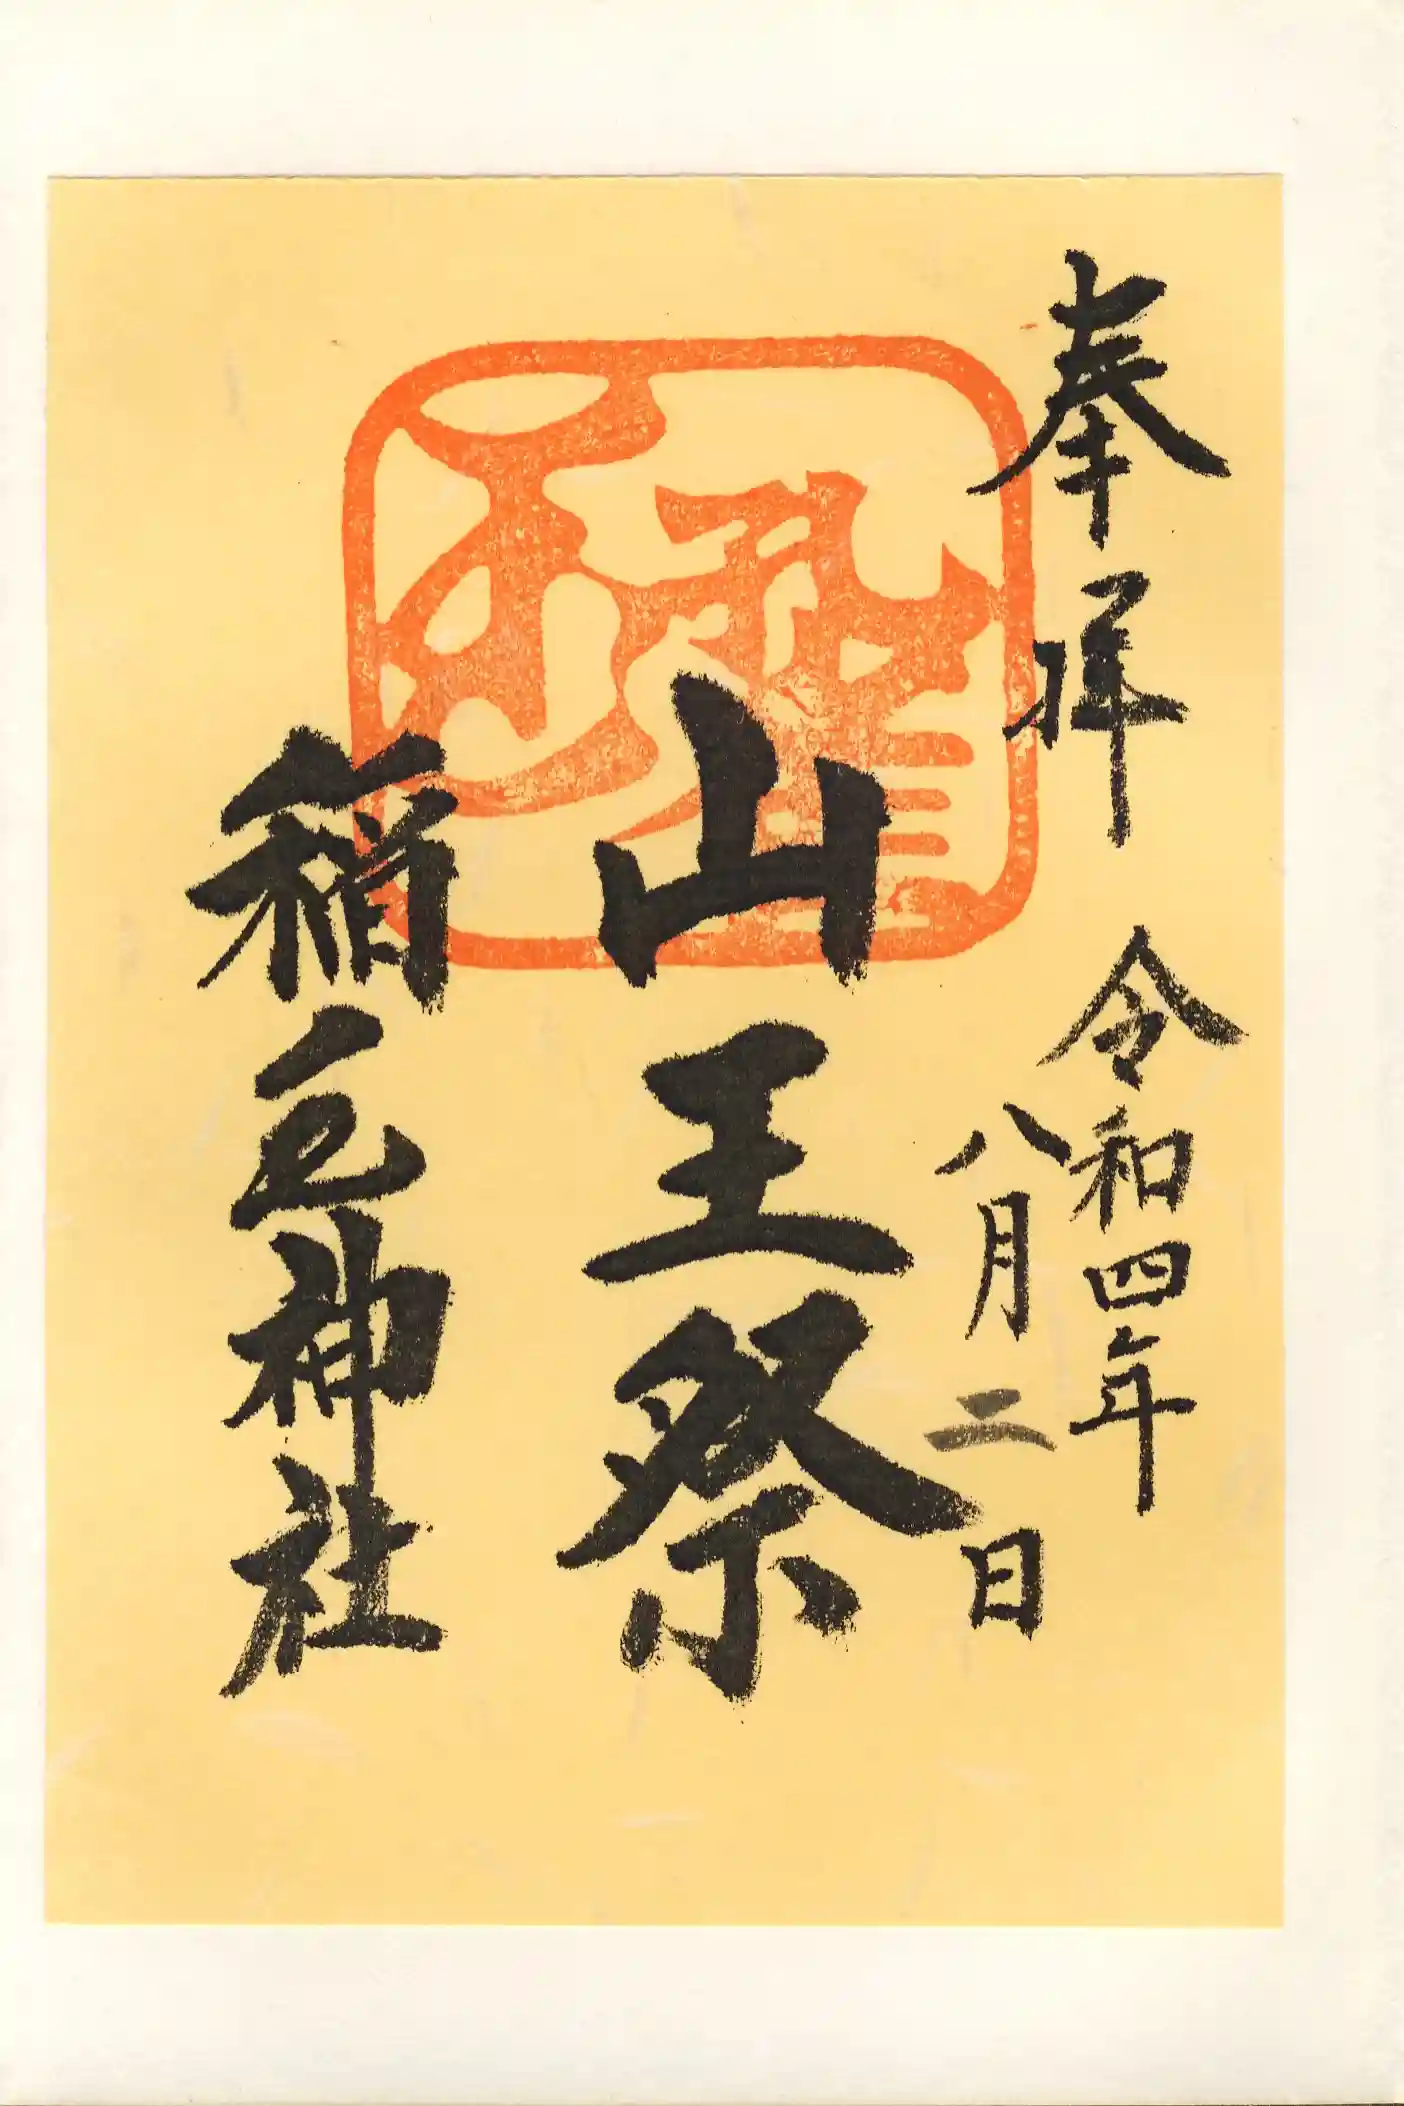 奉拝
令和四年
八月二日
山王祭
稲毛神社